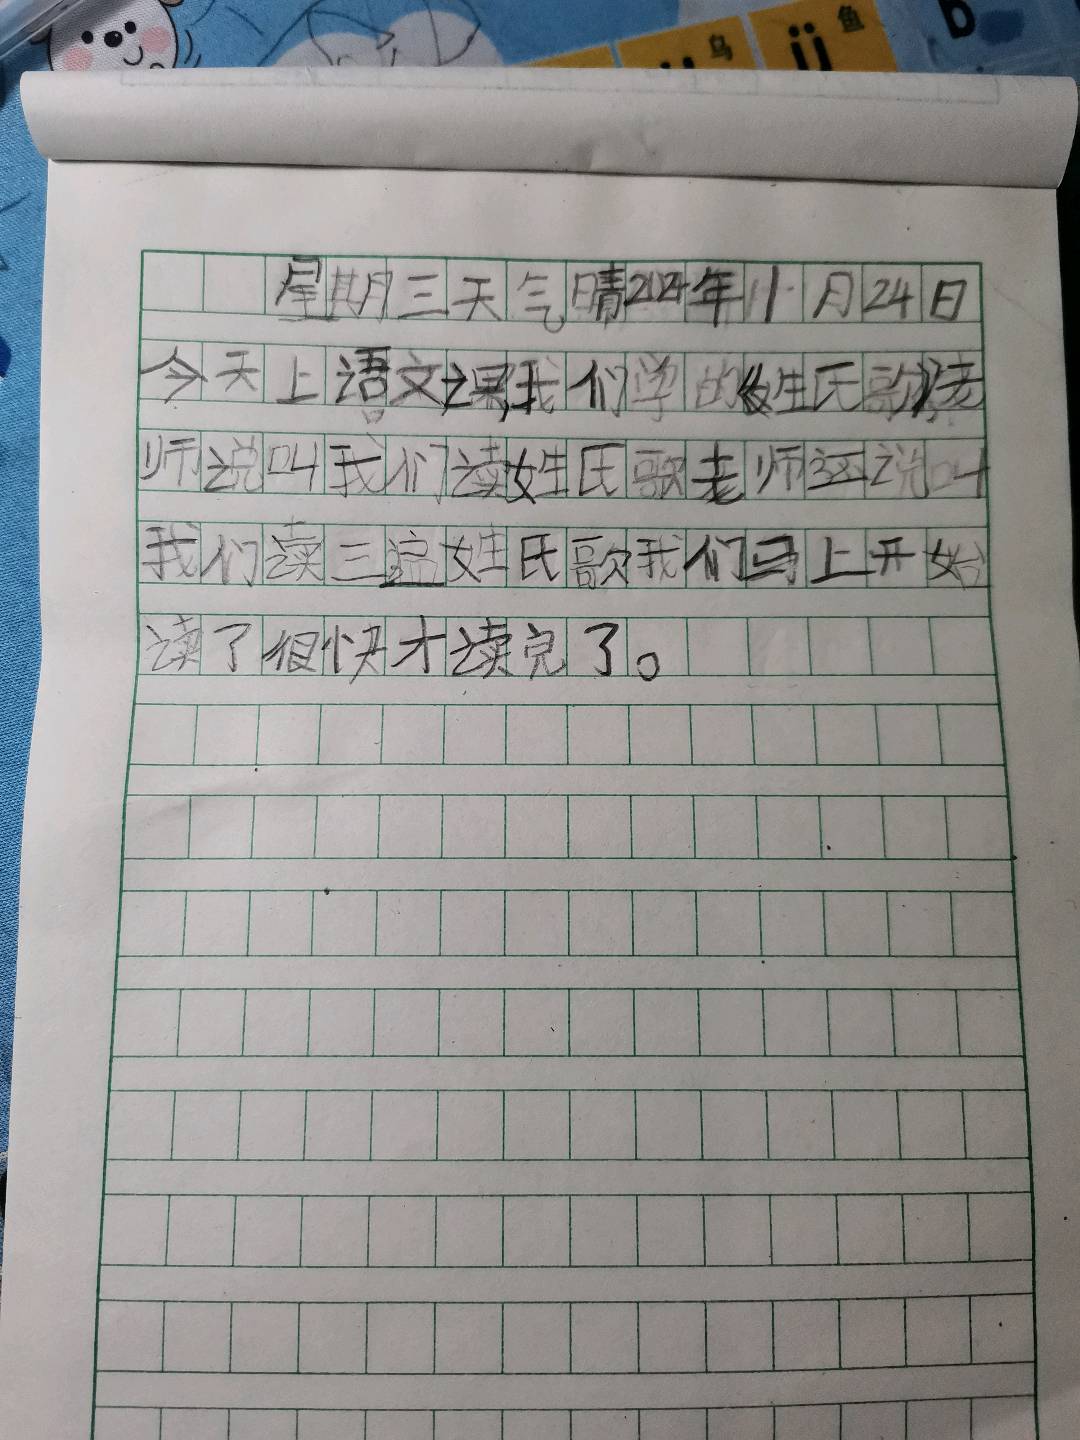 乌 鱼
ü b
星期三天气晴2024年11月24日
今天上语文课,我们学的《姓氏歌》老
师说叫我们读姓氏歌老师还说叫
我们读三遍姓氏歌我们马上开始
读了很快才读完了。